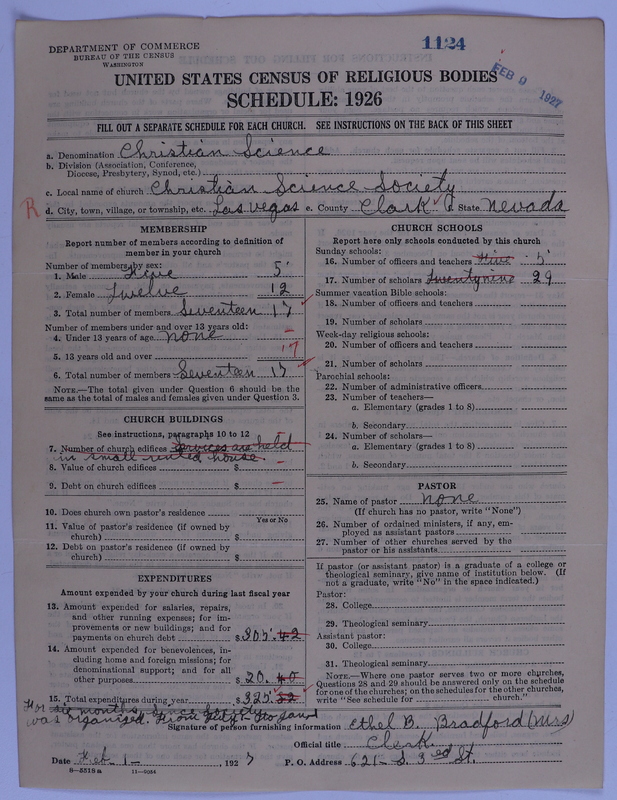 DEPARTMENT OF COMMERCE
BUREAU OF THE CENSUS
WASHINGTON
1124
FEB 9 1927
UNITED STATES CENSUS OF RELIGIOUS BODIES
SCHEDULE: 1926
FILL OUT A SEPARATE SCHEDULE FOR EACH CHURCH. SEE INSTRUCTIONS ON THE BACK OF THIS SHEET
a. Denomination Christian Science
b. Division (Association, Conference,
Diocese, Presbytery, Synod, etc.)
c. Local name of church Christian Science Society
R d. City, town, village, or township, etc. Las Vegas e. County Clark f. State Nevada
MEMBERSHIP
Report number of members according to definition of
member in your church
Number of members by sex:
1. Male five 5
2. Female Twelve 12
3. Total number of members Seventeen 17
Number of members under and over 13 years old:
4. Under 13 years of age none –
5. 13 years old and over 17
6. Total number of members Seventeen 17
NOTE.—The total given under Question 6 should be the
same as the total of males and females given under Question 3.
CHURCH BUILDINGS
See instructions, paragraphs 10 to 12
7. Number of church edifices Services are held
in small rented house.
8. Value of church edifices $ –
9. Debt on church edifices $ –
10. Does church own pastor's residence
Yes or No
11. Value of pastor's residence (if owned by
church) $
12. Debt on pastor's residence (if owned by
church) $
EXPENDITURES
Amount expended by your church during last fiscal year
13. Amount expended for salaries, repairs,
and other running expenses; for im-
provements or new buildings; and for
payments on church debt $ 305.42
14. Amount expended for benevolences, in-
cluding home and foreign missions; for
denominational support; and for all
other purposes $ 20.40
15. Total expenditures during year $ 325.82
For six months, since Society
was organized. From July to
CHURCH SCHOOLS
Report here only schools conducted by this church
Sunday schools:
16. Number of officers and teachers Five 5
17. Number of scholars Twentynine 29
Summer vacation Bible schools:
18. Number of officers and teachers
19. Number of scholars
Week-day religious schools:
20. Number of officers and teachers
21. Number of scholars
Parochial schools:
22. Number of administrative officers
23. Number of teachers—
a. Elementary (grades 1 to 8)
b. Secondary
24. Number of scholars—
a. Elementary (grades 1 to 8)
b. Secondary
PASTOR
25. Name of pastor none
(If church has no pastor, write "None")
26. Number of ordained ministers, if any, em-
ployed as assistant pastors
27. Number of other churches served by the
pastor or his assistants
If pastor (or assistant pastor) is a graduate of a college or
theological seminary, give name of institution below. (If
not a graduate, write "No" in the space indicated.)
Pastor:
28. College
29. Theological seminary
Assistant pastor:
30. College
31. Theological seminary
NOTE.—Where one pastor serves two or more churches,
Questions 28 and 29 should be answered only on the schedule
for one of the churches; on the schedules for the other churches,
write "See schedule for church."
Signature of person furnishing information Ethel B. Bradford (Mrs)
Official title Clerk.
Date Feb. 1 – , 1927 P. O. Address 621 – S. 3rd St.
8—5518a 11—9056